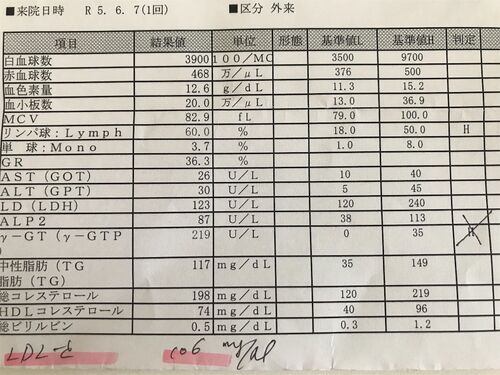 ■来院日時 R 5. 6. 7(1回) ■区分 外来
項目 結果値 単位 形態 基準値L 基準値H 判定
白血球数 3900 100/MC 3500 9700
赤血球数 468 万/μL 376 500
血色素量 12.6 g/dL 11.3 15.2
血小板数 20.0 万/μL 13.0 36.9
MCV 82.9 fL 79.0 100.0
リンパ球:Lymph 60.0 % 18.0 50.0 H
単 球:Mono 3.7 % 1.0 8.0
GR 36.3 %
AST(GOT) 26 U/L 10 40
ALT(GPT) 30 U/L 5 45
LD(LDH) 123 U/L 120 240
ALP2 87 U/L 38 113
γ-GT(γ-GTP 219 U/L 0 35 H
)
中性脂肪(TG 117 mg/dL 35 149
脂肪(TG)
総コレステロール 198 mg/dL 120 219
HDLコレステロール 74 mg/dL 40 96
総ビリルビン 0.5 mg/dL 0.3 1.2
LDL-c 106 mg/dl